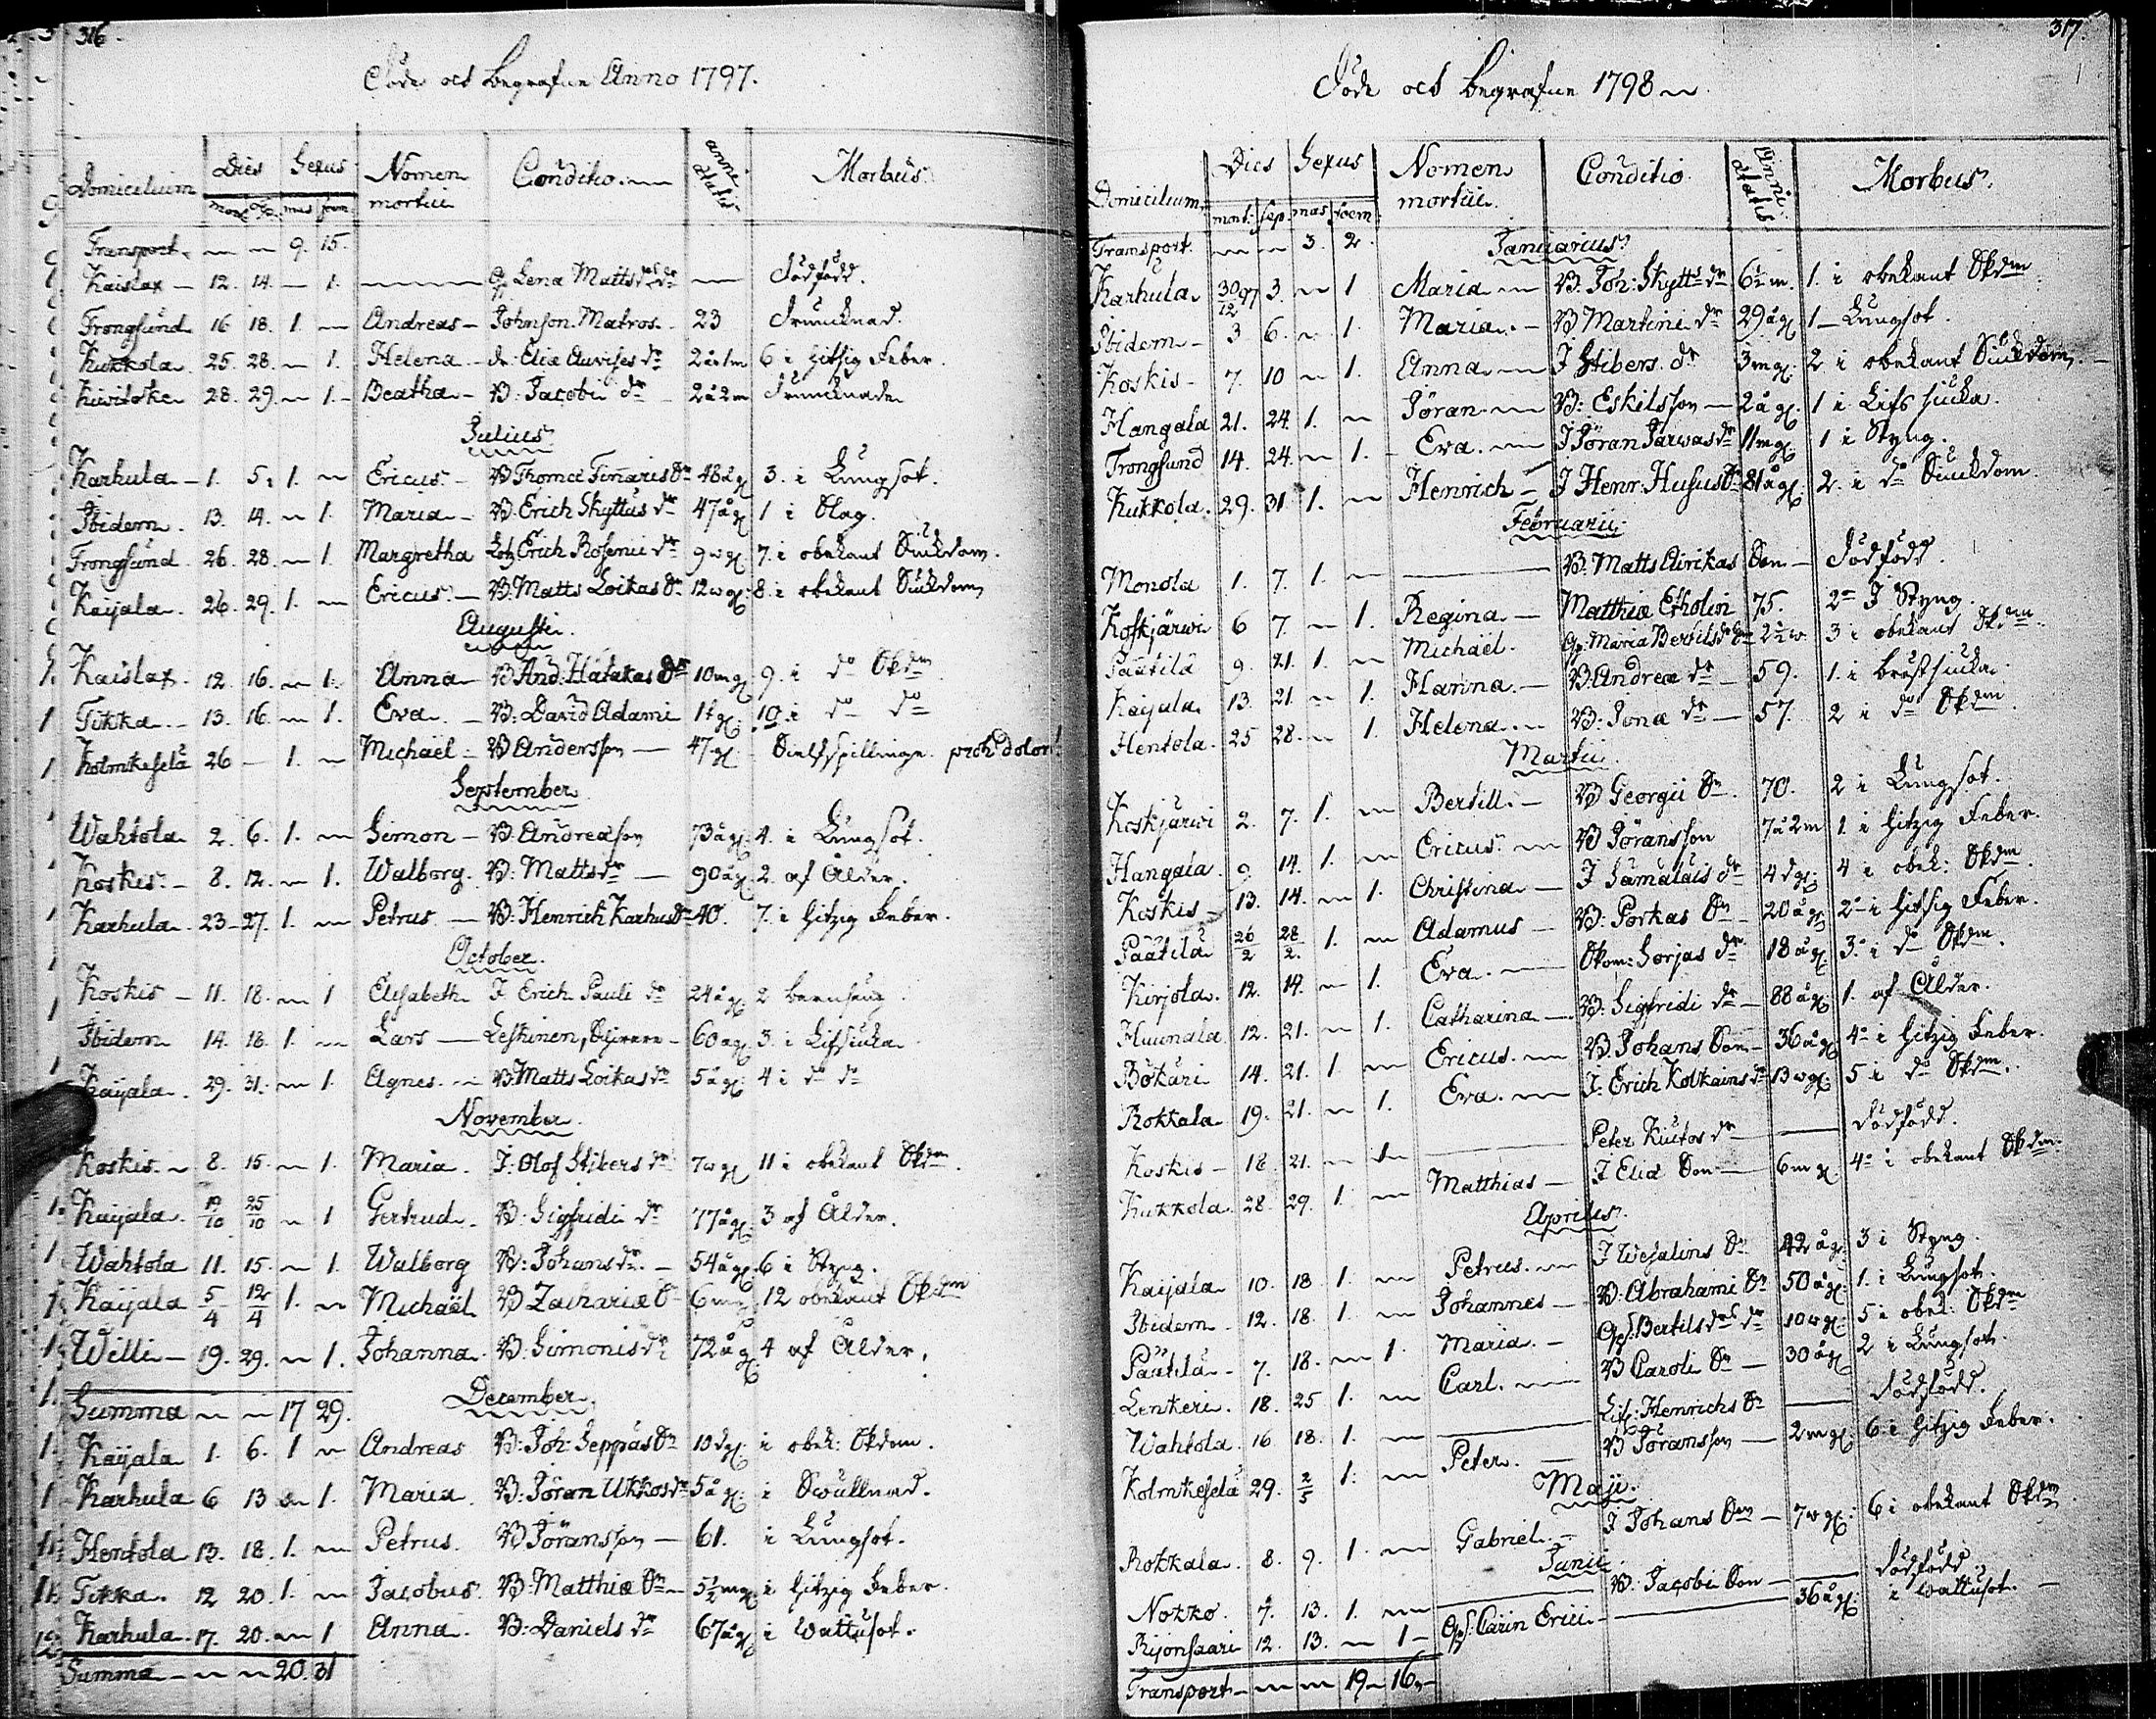 316.
Döde och Begrafne Anno 1797.
Domicilium Dies Sexus Nomen mortui Conditio Anni ætatis Morbus
mort. sep. mas foem
Transport 9. 15.
Kaislax 12. 14. 1. Lena Matts dr dr Dödfödd.
Trongsund 16 18. 1. Andreas Johnson Matros. 23 Drunknad.
Kukkola 25. 28. 1. Helena dr: Eliæ Auvises dr 2 å 1 m 6 i hitsig Feber.
28. 29. 1. Beatha B. Jacobi dr 2 å 2 m Drunknade
Julius
Karhula 1. 5. 1. Ericus B Thomæ Sn 48 å gl 3. i Lungsot.
Ibidem. 13. 14. 1. Maria B. Erich Skyttus dr 47 å gl 1 i Slag.
Trongsund. 26. 28. 1. Margretha Erich Rosenii dr 9 w gl. 7. i obekant Siukdom.
Kaijala. 26. 29. 1. Ericus. B. Matts Loikas Sn 12 w gl. 8. i obekant Siukdom
Augusti.
Kaislax. 12. 16. 1. Anna B And: Hätäkas dr 10 m gl. 9. i do Skdm
Tikka. 13. 16. 1. Eva. B: David Adami 10 i do do
Kolmikeselä 26 1. Michaël B Andersson 47 gl. Sielfspillinge. proh dolor!
September.
Wahtola 2. 6. 1. Simon B Andreæson 73 å gl. 4. i Lungsot.
Koskis. 8. 12. 1. Walborg. B: Matts dr 90 å gl. 2. af Ålder.
Karhula 23 27. 1. Petrus B: Henrich Karhus Sn 40. 7. i hitzig Feber.
October.
Koskis 11. 18. 1 Elisabeth J Erich Pauli dr 24 å gl. 2 barnsäng
Ibidem 14. 18. 1. Lars Leskinen, 60 å gl. 3. i Lifsiuka
Kaijala. 29. 31. 1. Agnes. B. Matts Loikas dr 5 å gl. 4 i do do
November.
Koskis. 8. 15. 1. Maria. J: Olof Stibers dr 7 w gl 11 i obekant Skdm.
Kaijala. 19/10 25/10 1 Gertrud. B: Sigfridi dr 77 å gl. 3 af Ålder.
Wahtola 11. 15. 1. Walborg B: Johans dr. 54 å gl. 6 i Styng.
Kaijala 5/4 12/4 1. Michaël B Zachariæ Sn 6 m gl. 12 obekant Skdm
Willi 19. 29. 1. Johanna. B. Simonis dr 72 å gl. 4 af Ålder.
Summa 17 29.
December.
Kaijala 1. 6. 1 Andreas B: Joh: Seppäs Sn 10 d gl. i obek: Skdom.
Karhula 6 13 1. Maria. B: Jöran Ukkos dr 5 å gl. i Swullnad.
Hentola 13. 18. 1. Petrus. B Jöransson 61. i Lungsot.
Tikka. 12 20. 1. Jacobus. B: Matthiæ Sn 5½ m gl. i hitzig Feber.
Karhula. 17. 20. 1 Anna. B: Daniels dr 67 å gl. i Wattusot.
Summa 20. 31
317.
Döde och Begrafne 1798
Domicilium Dies Sexus Nomen mortui. Conditio. Anni ætatis Morbus.
mort. sep. mas foem.
Transport. 3. 2.
Januarius
Karhula. 30/12 97 3. 1 Maria B. Joh: Skytts dr 6½ m. 1. i obekant Skdm
Ibidem 3 6. 1. Maria. B Martini dr 29 å gl. 1 Lungsot.
Koskis 7. 10 1. Anna J Stibers. dr 3 m gl. 2 i obekant Siukdom.
Hangala 21. 24. 1. Jöran B: Eskilsson 2 å gl. 1 i Lifsiuka.
Trongsund 14. 24. 1. Eva. J Jöran dr 11 m gl. 1 i Styng.
Kukkola. 29. 31. 1. Henrich J Henr: Husus Sn 81 å gl. 2. i do Siukdom
Februarii.
Monola 1. 7. 1. B: Matts Airikas Son Dödfödd.
Koskjärwi 6 7. 1. Regina. Matthiæ Etholin 75. 2 I Styng.
Päätilä 9. 21. 1. Michaël. Maria Bertils dr Sn 2½ w. 3 i obekant Skdm
Kaijala 13. 21 1. Hanna. B: Andreæ dr 59. 1. i bröstsiuka.
Hentola. 25 28. 1. Helena. B: Jonæ dr 57 2 i do Skdm
Martii.
Koskjärwi 2. 7. 1. Bertill. B Georgii Sn. 70. 2 i Lungsot.
Hangala. 9. 14. 1. Ericus. B Jöransson 7 å 2 m 1. i hitzig Feber.
Koskis 13. 14. 1. Christina J Sämäläis dr 4 d gl. 4 i obek: Skdm.
Päätilä 26/2 28/2 1. Adamus B: Porkas Sn 20 å gl. 2 i hitsig Feber.
Kirjola. 12. 14. 1. Eva. Skom: Sorjas dr 18 å gl. 3. i do Skdm.
Huunala 12. 21. 1. Catharina B: Sigfridi dr 88 å gl. 1. af Ålder.
Bökäri 14. 21. 1 Ericus. B. Johans Son 36 å gl. 4 i hitzig Feber.
Rokkala 19. 21. 1. Eva. J. Erich Kolkains dr 13 w gl. 5 i do Skdm.
Koskis 18. 21. 1 Peter Kiutos dr Dödfödd.
Kukkola. 28. 29. 1. Matthias J Eliæ Son 6 m gl. 4 i obekant Skdm.
Aprilis.
Kaijala 10. 18. 1. Petrus. J Wesalins Sn 42 å gl. 3 i Styng.
Ibidem. 12. 18. 1. Johannes B: Abrahami Sn 50 å gl. 1. i Lungsot.
Päätilä 7. 18. 1. Maria. Bertils dr dr 10 w gl. 5 i obek: Skdm
Lenkeri. 18. 25 1. Carl. B Caroli Sn 30 å gl. 2 i Lungsot.
Wahtola. 16 18. 1. Henrichs Sn Dödfödd.
Kolmikeselä 29. 2/5 1. Peter. B Jöransson 2 m gl. 6 i hitzig Feber.
Maji.
Rokkala. 8. 9. 1. Gabriel. J Johans Son 7 w gl. 6 i obekant Skdm
Junii
Nokko. 9. 13. 1. B: Jacobi Son Dödfödd
Rijonsaari 12. 13. 1 Carin Erici 36 å gl. i Wattusot.
Transport 19 16.